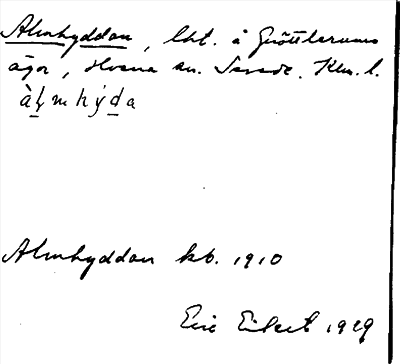 Almhyddan, lht. å Gröttlerums
ägor, Hvena sn. Sevede. Klm. l.
àl̲mhýd̲a
Almhyddan kb. 1910
Eric Eckert 1929